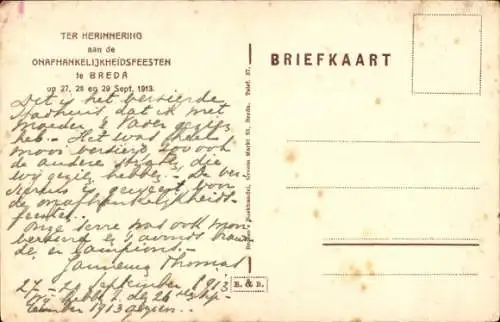 TER HERINNERING
aan de
ONAFHANKELIJKHEIDSFEESTEN
te BREDA
op 27, 28 en 29 Sept. 1913.
Dit is het versierde
Stadhuis dat ik met
moeder & Vader gezien
heb. Het was heel
mooi versierd, zoo ook
de andere straten die
wij gezien hebben. De ver-
siering is geweest voor
de onafhankelijkheids-
feesten.
Onze serre was ook mooi
versierd en 's avonds brand-
de er lampions.
Thomas
27-29 September 1913
wij hebben de 28 Sept-
tember 1913 gezien.
BRIEFKAART
Boekhandel, Groote Markt 51, Breda. Telef. 57.
H. & B.